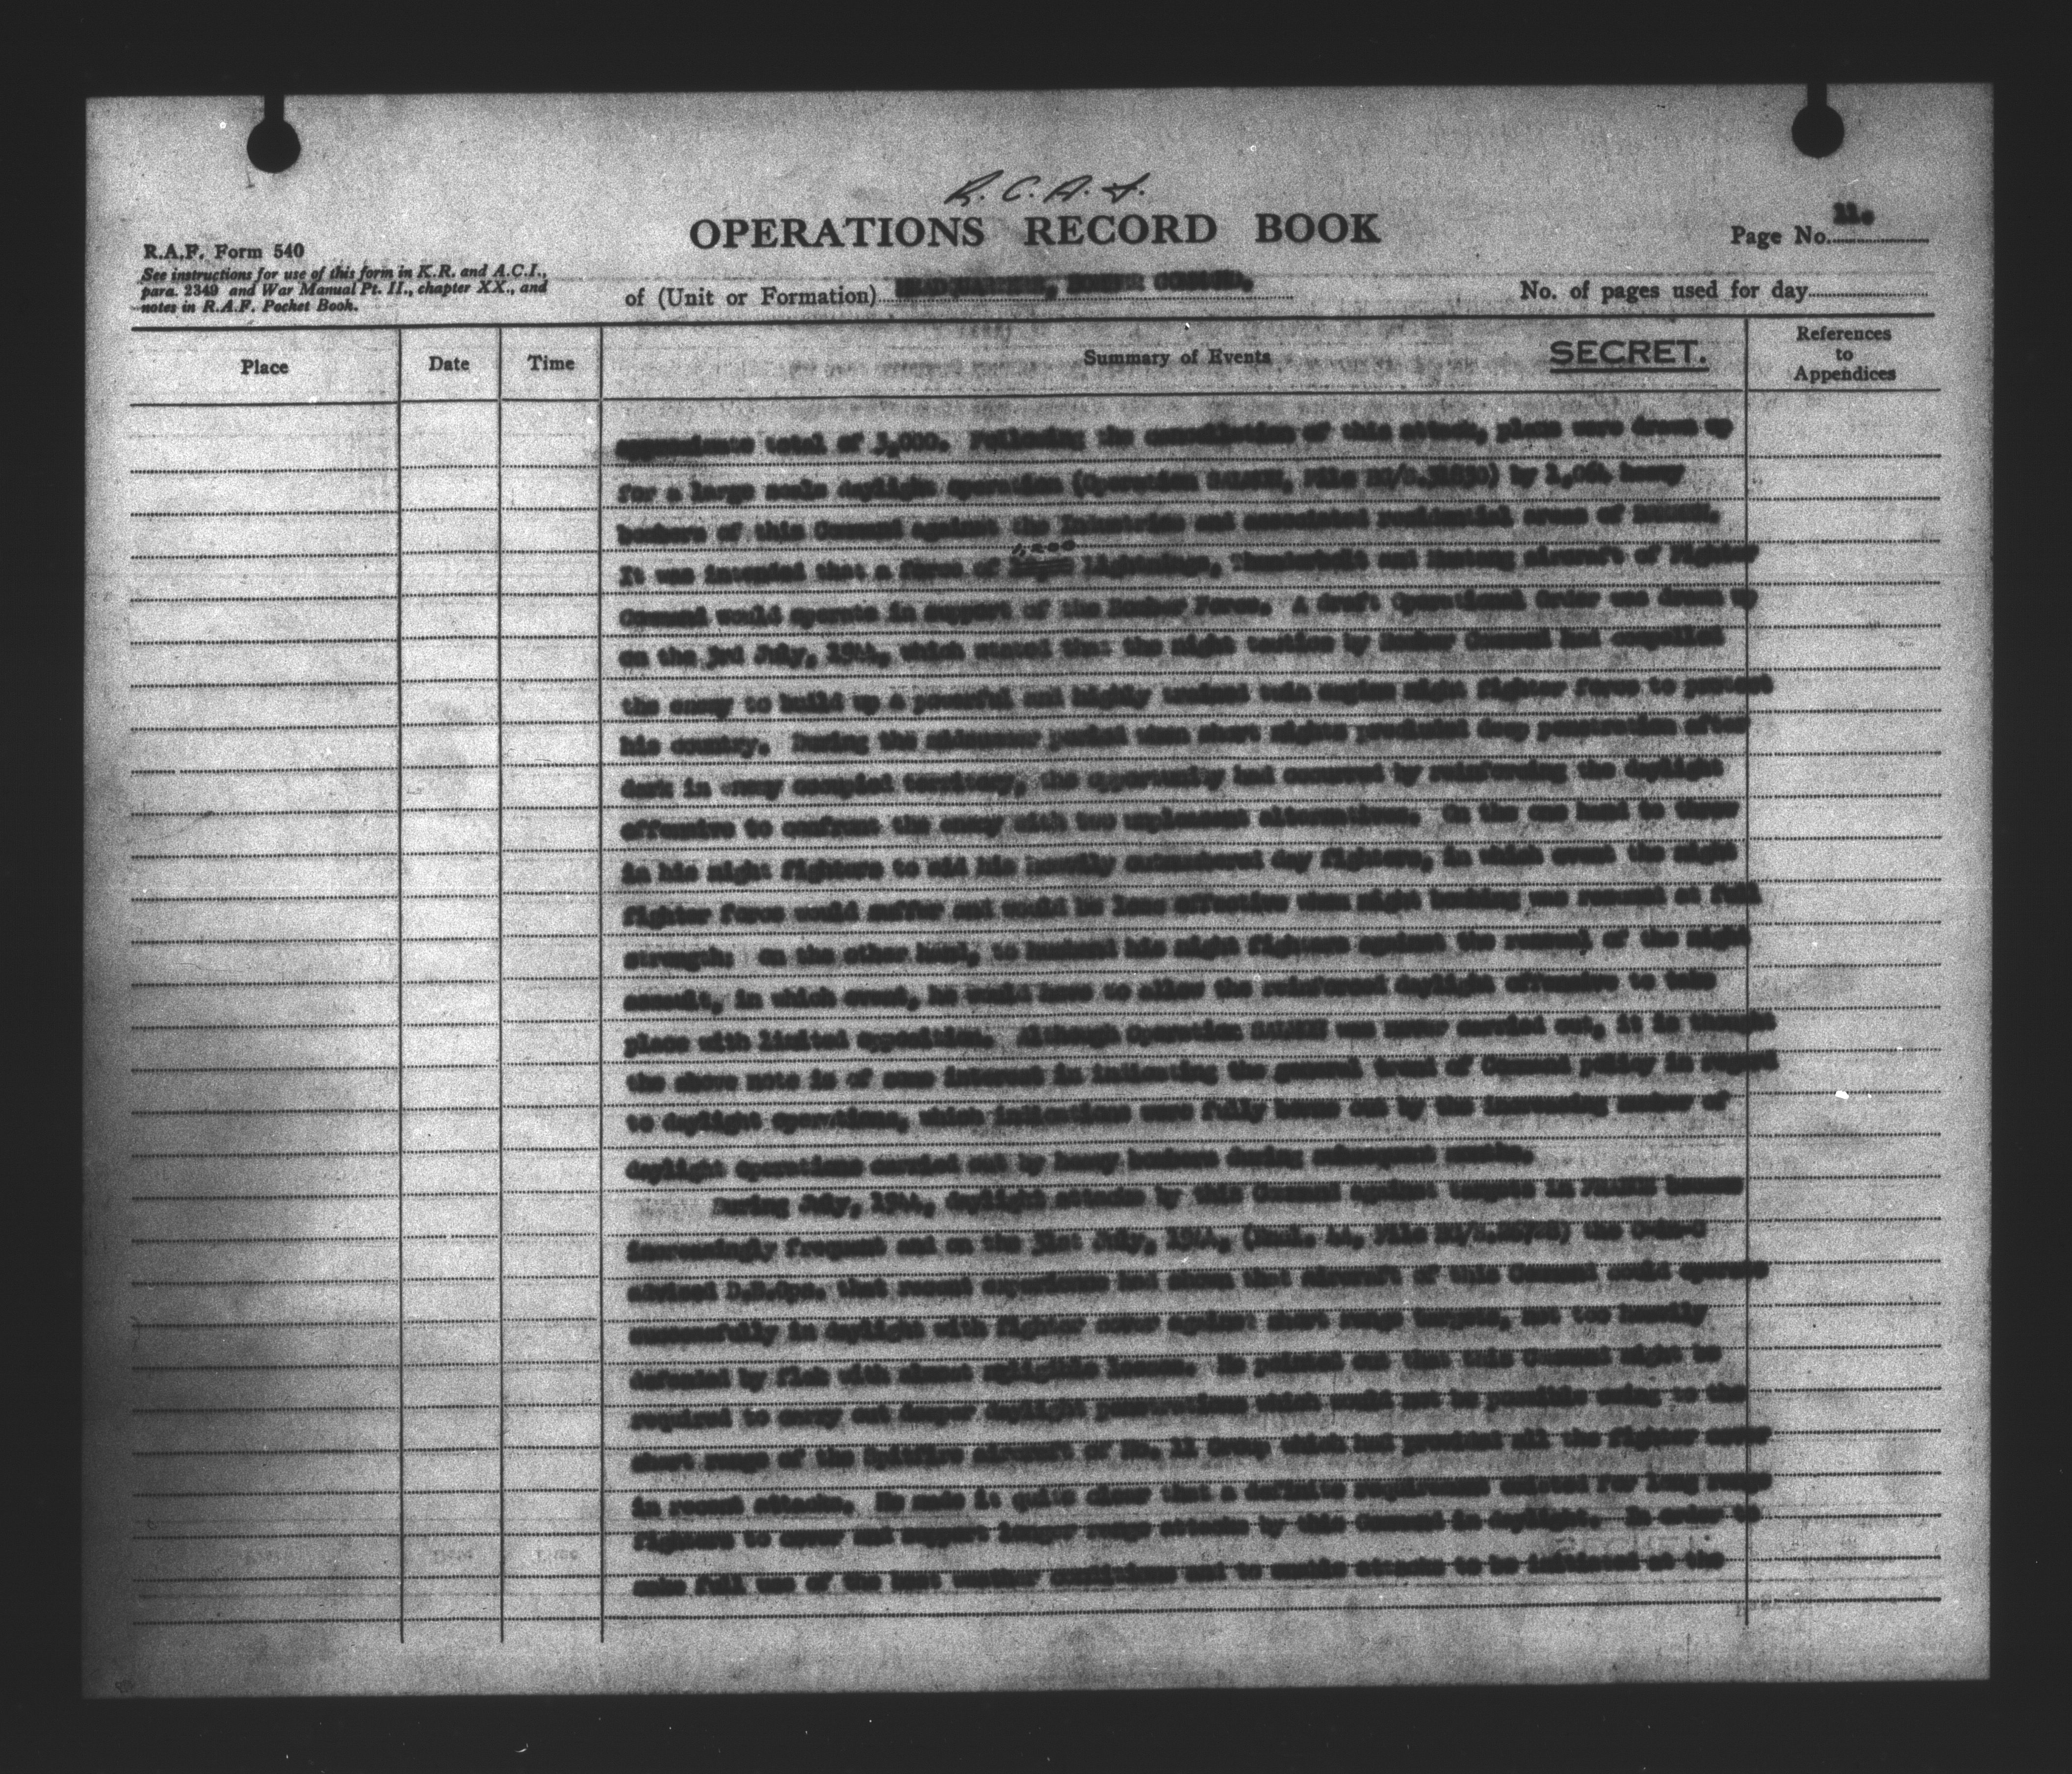 R. C. A. F.
OPERATIONS RECORD BOOK
Page No. 11.
R.A.F. Form 540
See instructions for use of this form in K.R. and A.C.I.,
para. 2349 and War Manual Pt. II., chapter XX., and
notes in R.A.F. Pocket Book.
of (Unit or Formation) HEADQUARTERS, BOMBER COMMAND.
No. of pages used for day
Place Date Time Summary of Events SECRET. References to Appendices
approximate total of 3,000. Following the cancellation of this attack, plans were drawn up
for a large scale daylight operation (Operation File by heavy
bombers of this Command against the Industries and associated residential areas of
1,200
It was intended that a force of Lightnings, Thunderbolt and Mustang aircraft of Fighter
Command would operate in support of the Bomber Force. A draft Operational Order was drawn up
on the 3rd July, 1944, which stated that the night tactics by Bomber Command had compelled
the enemy to build up a powerful and highly trained twin engine night fighter force to protect
his country. During the midsummer period when short nights precluded deep penetration after
dark in enemy occupied territory, the opportunity had occurred by reinforcing the daylight
offensive to confront the enemy with two unpleasant alternatives. On the one hand to throw
in his night fighters to aid his heavily outnumbered day fighters, in which event the night
fighter force would suffer and would be less effective when night bombing was resumed at full
strength: on the other hand, to husband his night fighters against the renewal of the night
assault, in which event, he would have to allow the reinforced daylight offensive to take
place with limited opposition. Although Operation was never carried out, it is thought
the above note is of some interest in indicating the general trend of Command policy in regard
to daylight operations, which indications were fully borne out by the increasing number of
daylight operations carried out by heavy bombers during subsequent months.
During July, 1944, daylight attacks by this Command against targets in FRANCE became
increasingly frequent and on the 31st July, 1944, (Encl. 4A, File the C-in-C
advised D.B.Ops. that recent experience had shown that aircraft of this Command could operate
successfully in daylight with fighter cover against short range targets, not too heavily
defended by flak with almost negligible losses. He pointed out that this Command might be
required to carry out deeper daylight penetrations which would not be possible owing to the
short range of the Spitfire aircraft of No. 11 Group which had provided all the fighter cover
in recent attacks. He made it quite clear that a definite requirement existed for long range
fighters to cover and support longer range attacks by this Command in daylight. In order to
make full use of the best weather conditions and to enable attacks to be initiated at the